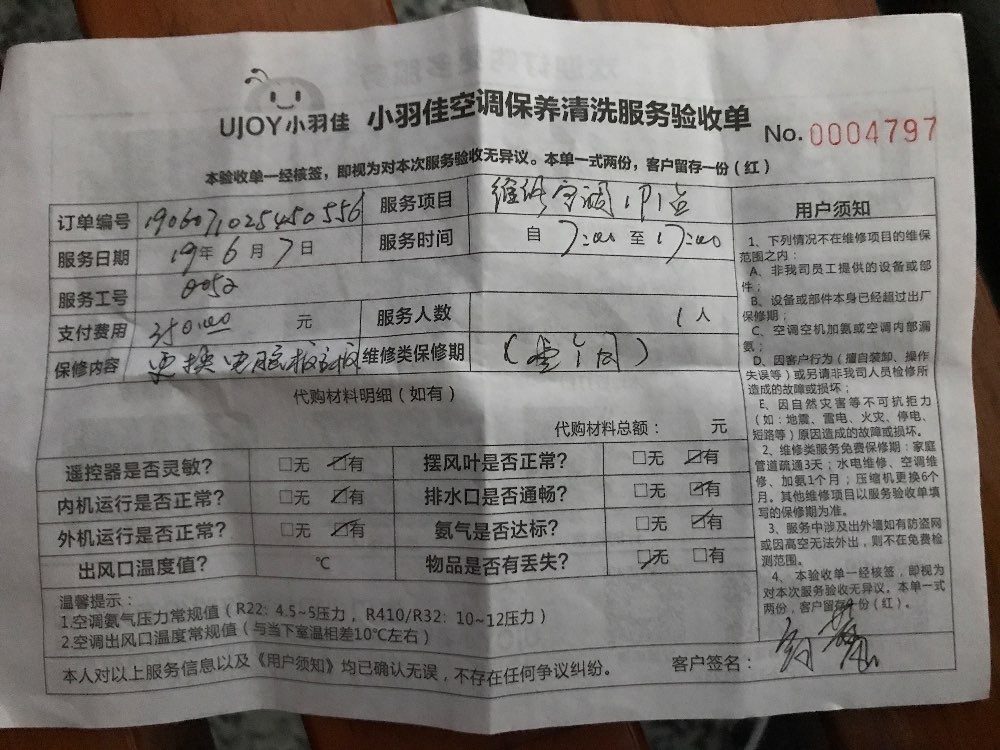 UJOY小羽佳 小羽佳空调保养清洗服务验收单 No. 0004797
本验收单一经核签，即视为对本次服务验收无异议。本单一式两份，客户留存一份（红）
订单编号 1906071025450556 服务项目 维修空调
服务日期 19年6月7日 服务时间 自 7:00 至 17:00
服务工号 0052
支付费用 元 服务人数 1人
保修内容 更换电脑板 维修类保修期
代购材料明细（如有）
代购材料总额： 元
遥控器是否灵敏？ □无 ☑有 摆风叶是否正常？ □无 ☑有
内机运行是否正常？ □无 ☑有 排水口是否通畅？ □无 ☑有
外机运行是否正常？ □无 ☑有 氨气是否达标？ □无 ☑有
出风口温度值？ ℃ 物品是否有丢失？ ☑无 □有
温馨提示：
1.空调氨气压力常规值（R22：4.5~5压力， R410/R32：10~12压力）
2.空调出风口温度常规值（与当下室温相差10℃左右）
本人对以上服务信息以及《用户须知》均已确认无误，不存在任何争议纠纷。 客户签名：
用户须知
1、下列情况不在维修项目的维保
范围之内：
A、非我司员工提供的设备或部
件；
B、设备或部件本身已经超过出厂
保修期；
C、空调空机加氨或空调内部漏
氨；
D、因客户行为（擅自装卸、操作
失误等）或另请非我司人员检修所
造成的故障或损坏；
E、因自然灾害等不可抗拒力
（如：地震、雷电、火灾、停电、
短路等）原因造成的故障或损坏。
2、维修类服务免费保修期：家庭
管道疏通3天；水电维修、空调维
修、加氨1个月；压缩机更换6个
月。其他维修项目以服务验收单填
写的保修期为准。
3、服务中涉及出外墙如有防盗网
或因高空无法外出，则不在免费检
测范围。
4、本验收单一经核签，即视为
对本次服务验收无异议。本单一式
两份，客户留存一份（红）。